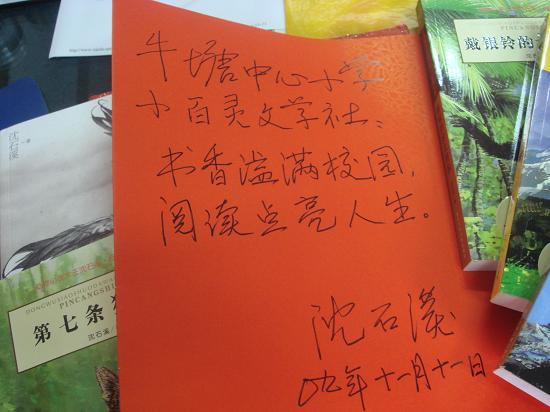 牛塘中心小学
小百灵文学社：
书香溢满校园，
阅读点亮人生。
沈石溪
09年十一月十一日
沈石溪
DONGWUXIAOSHUODAWA
PINCANGSHU
第七条猎
沈石溪
PINCANGSH
戴银铃的